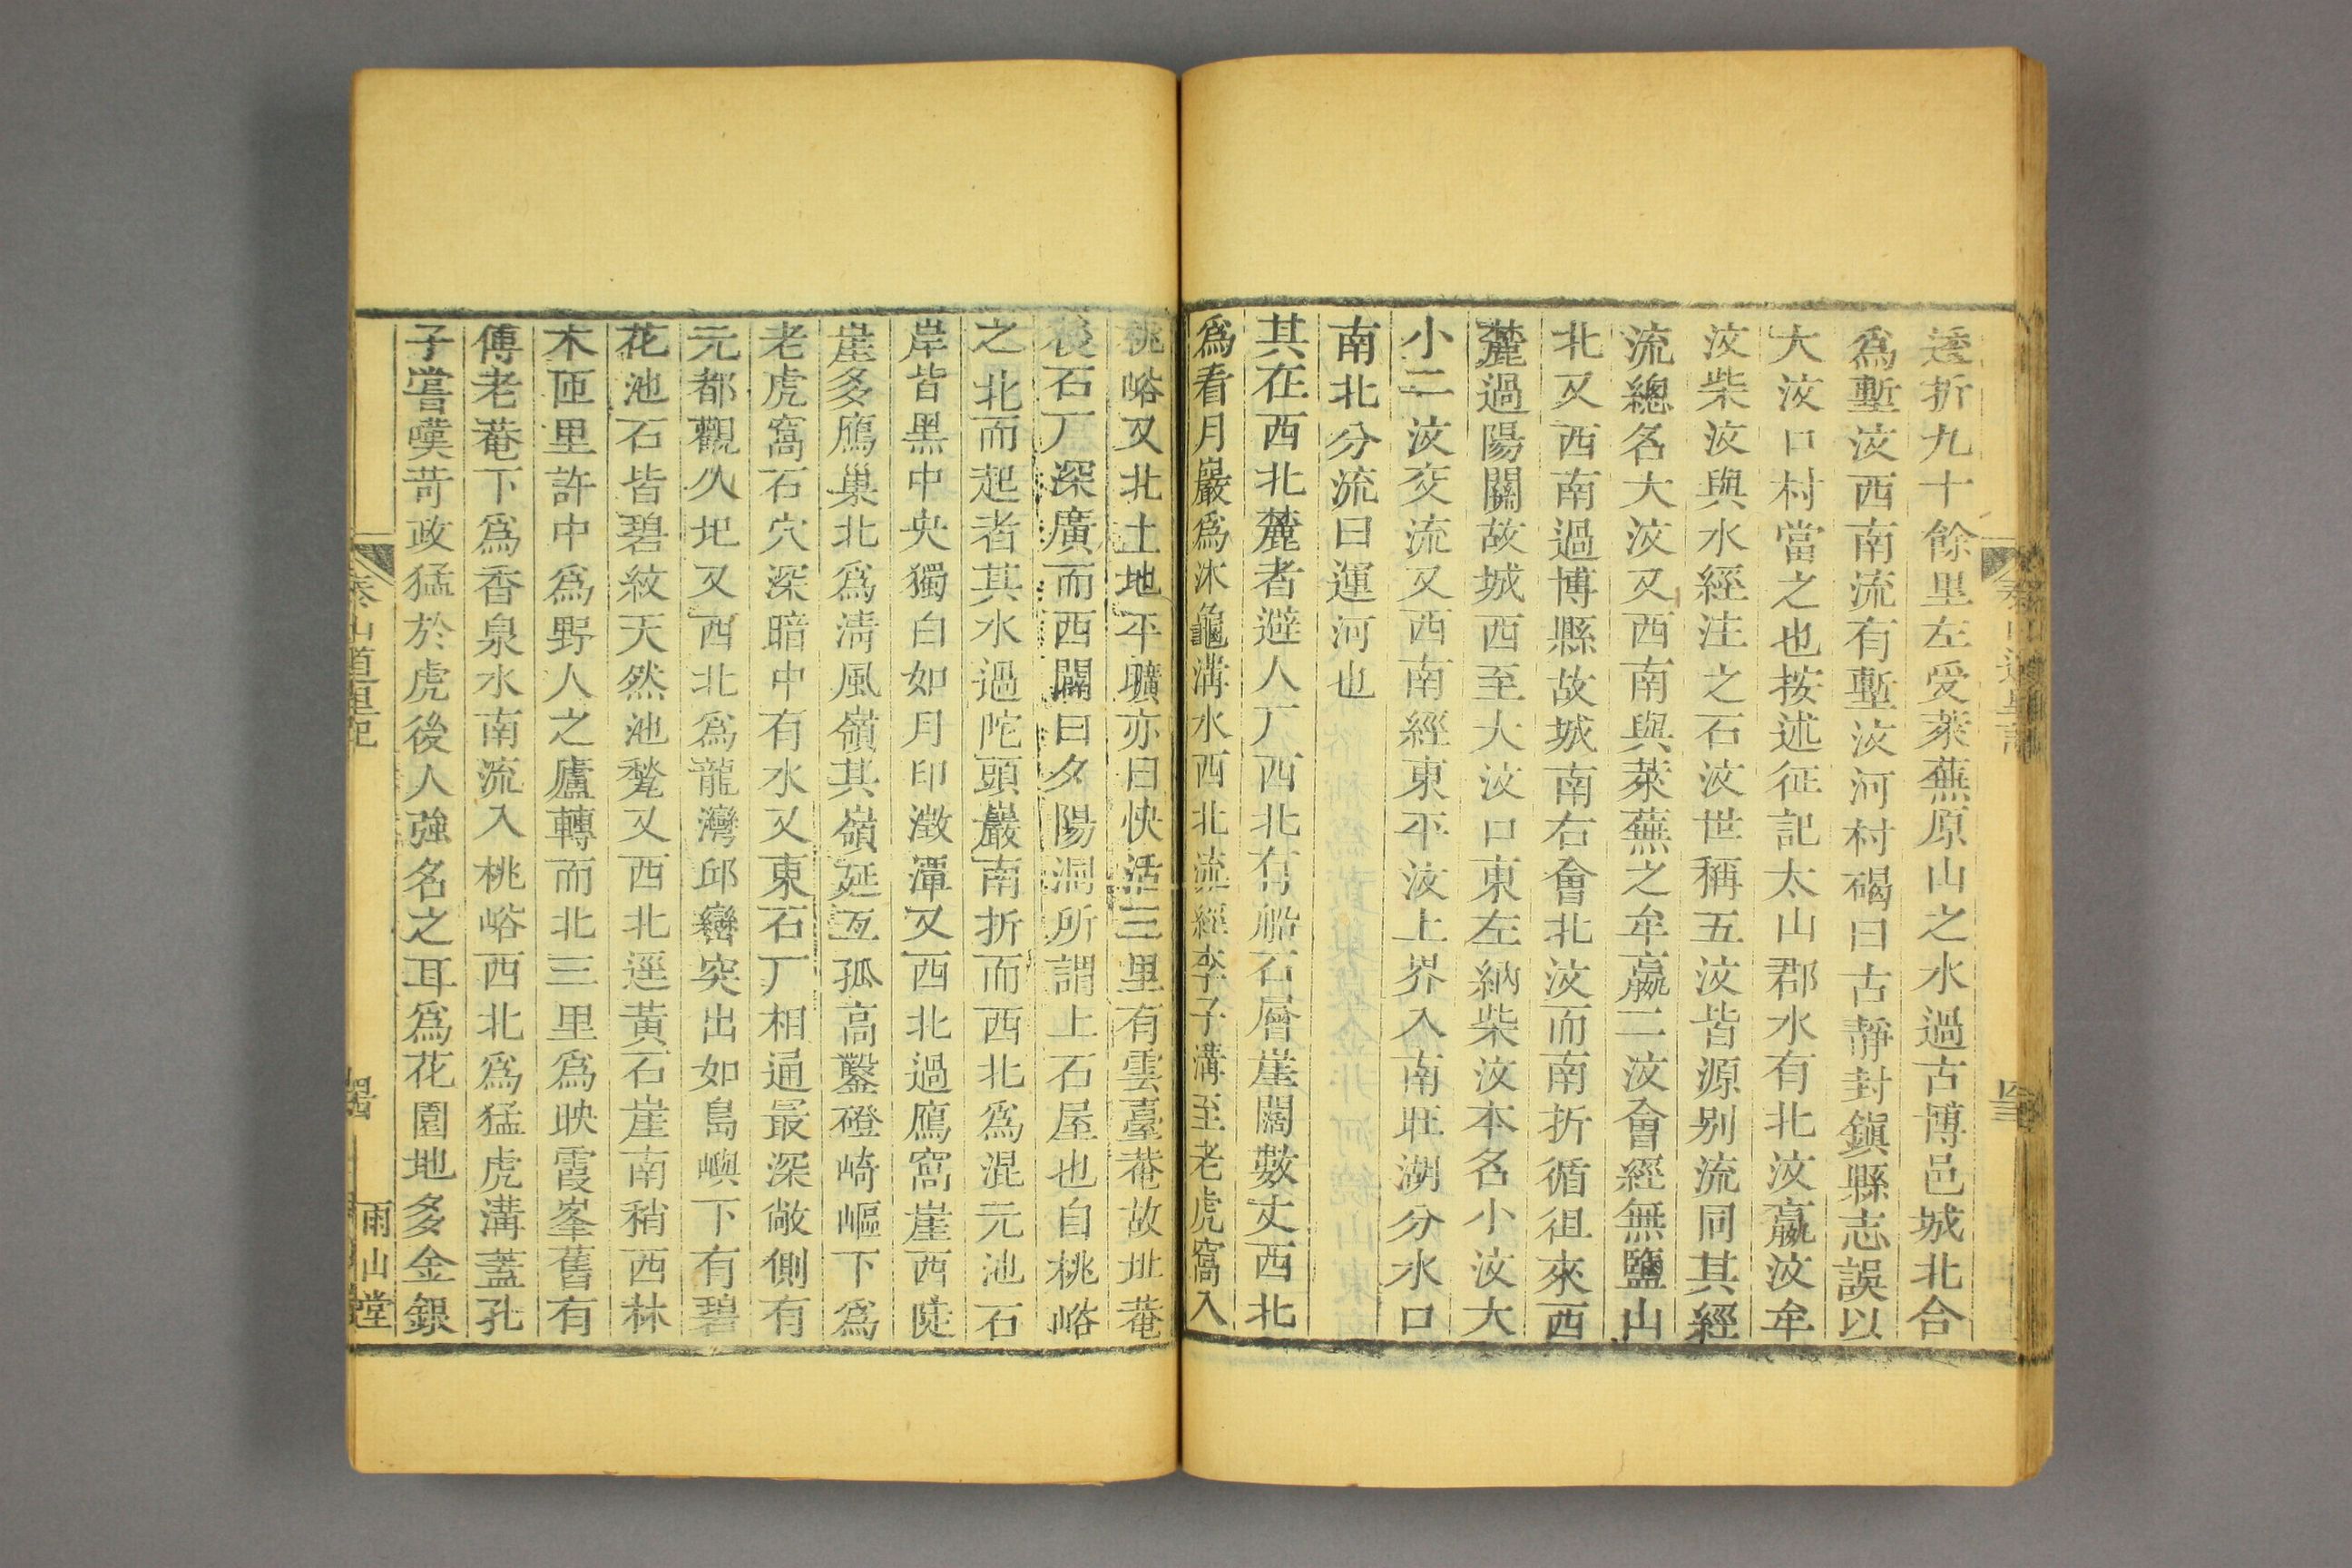 逶折九十餘里左受萊蕪原山之水過古博邑城北合
爲塹汶西南流有塹汶河村碣曰古靜封鎭縣志誤以
大汶口村當之也按述征記太山郡水有北汶嬴汶牟
汶柴汶與水經注之石汶世稱五汶皆源别流同其經
流總名大汶又西南與萊蕪之牟嬴二汶會經無鹽山
北又西南過博縣故城南右會北汶而南折循徂來西
麓過陽關故城西至大汶口東左納柴汶本名小汶大
小二汶交流又西南經東平汶上界入南旺湖分水口
南北分流曰運河也
其在西北麓者遊人厂西北有船石層崖闊數丈西北
爲看月巖爲沐龜溝水西北流經李子溝至老虎窩入
桃峪又北土地平曠亦曰快活三里有雲臺菴故址菴
後石厂深廣而西闢曰夕陽洞所謂上石屋也自桃峪
之北而起者其水過陀頭巖南折而西北爲混元池石
岸皆黑中央獨白如月印澂潭又西北過鷹窩崖西陡
崖多鷹巢北爲清風嶺其嶺延亙孤高鑿磴崎嶇下爲
老虎窩石穴深暗中有水又東石厂相通最深敞側有
元都觀久圯又西北爲龍灣邱巒突出如島嶼下有碧
花池石皆碧紋天然池甃又西北逕黃石崖南稍西林
木匝里許中爲野人之廬轉而北三里爲映霞峯舊有
傅老菴下爲香泉水南流入桃峪西北爲猛虎溝蓋孔
子嘗嘆苛政猛於虎後人強名之耳爲花園地多金銀
泰山道里記
雨山堂